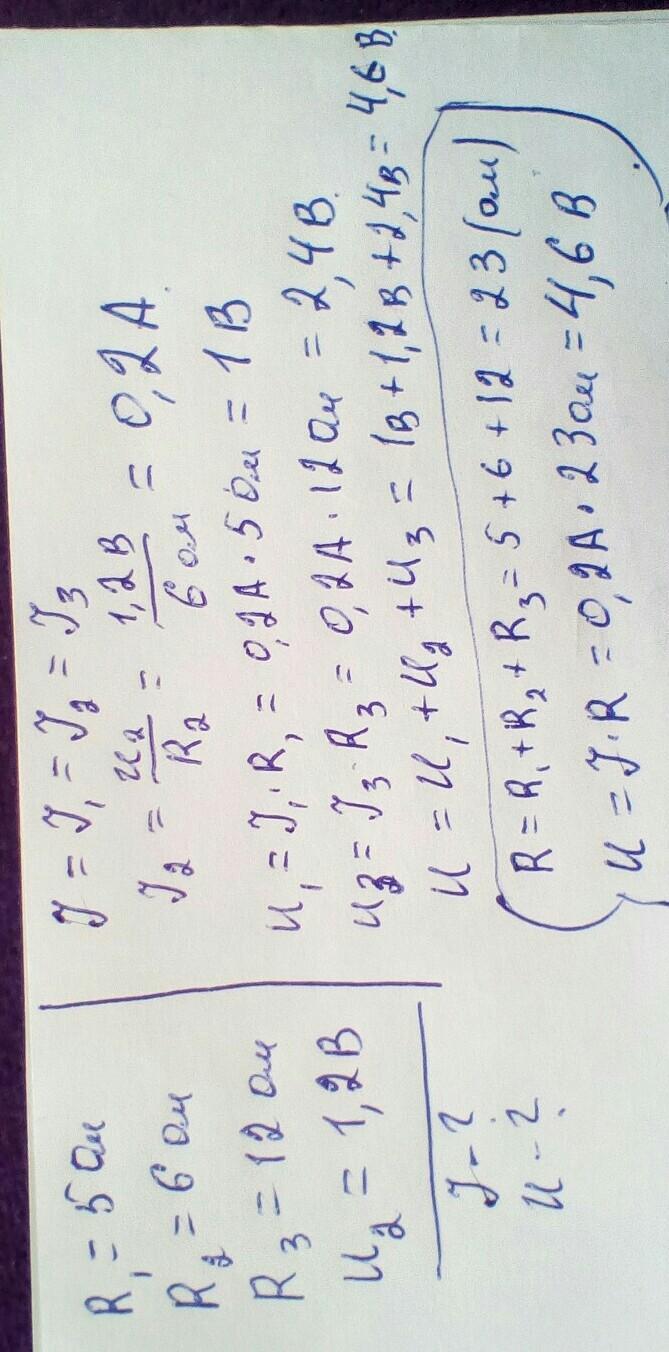 R₁ = 5 ом
R₂ = 6 ом
R₃ = 12 ом
U₂ = 1,2 В
J - ?
U - ?
J = J₁ = J₂ = J₃
J₂ = U₂/R₂ = 1,2 В/6 ом = 0,2 А.
U₁ = J₁ · R₁ = 0,2 А · 5 ом = 1 В
U₃ = J₃ · R₃ = 0,2 А · 12 ом = 2,4 В.
U = U₁ + U₂ + U₃ = 1в + 1,2 В + 2,4в = 4,6 В.
R = R₁ + R₂ + R₃ = 5 + 6 + 12 = 23 (ом)
U = J · R = 0,2 А · 23 ом = 4,6 В